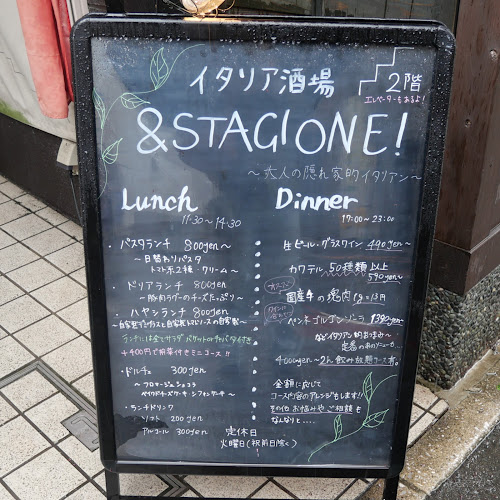 イタリア酒場
2階
エレベーターもあるよ!
&STAGIONE!
～大人の隠れ家的イタリアン～
Lunch
11:30～14:30
・パスタランチ 800yen～
～日替わりパスタ
トマト系2種・クリーム～
・ドリアランチ 800yen
～豚肉ラグーのチーズたっぷり～
・ハヤシランチ 800yen
ランチには全てサラダ
+400円で前菜付きミニコース!!
・ドルチェ 300yen
～フロマージュショコラ
ベイクドチーズケーキ シフォンケーキ～
・ランチドリンク
ソフト 200yen
アルコール 300yen
Dinner
17:00～23:00
生ビール・グラスワイン 490yen～
カクテル 50種類以上
590yen～
国産牛の塊肉
ペンネゴルゴンゾーラ
などイタリアン
定番
4000yen～2h飲み放題コース有。
金額に応じて
コース内容のアレンジもします!!
その他お悩みやご相談も
なんなりと....
定休日
火曜日(祝前日除く)